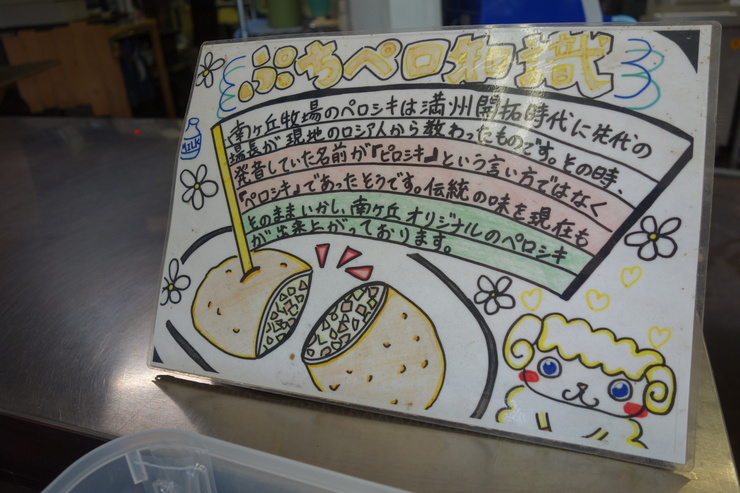 ぷちペロ知識
南ヶ丘牧場のペロシキは満州開拓時代に先代の
場長が現地のロシア人から教わったものです。その時、
発音していた名前が『ピロシキ』という言い方ではなく
『ペロシキ』であったそうです。伝統の味を現在も
そのままいかし、南ヶ丘オリジナルのペロシキ
が出来上がっております。
MILK